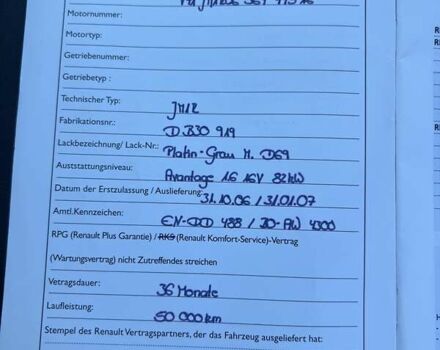 Motornummer:
Motortyp:
Getriebenummer:
Getriebetyp :
Technischer Typ: JM12
Fabrikationsnr.: D.B30 919
Lackbezeichnung/ Lack-Nr.: Platin-Grau M. D69
Auststattungsniveau: Avantage 1.6 16V 82kW
Datum der Erstzulassung / Auslieferung: 31.10.06 / 31.01.07
Amtl.Kennzeichen: 488 / 4300
RPG (Renault Plus Garantie) / RKS (Renault Komfort-Service)-Vertrag
(Wartungsvertrag) nicht Zutreffendes streichen
Vetragsdauer: 36 Monate
Laufleistung: 50 000km
Stempel des Renault Vertragspartners, der das Fahrzeug ausgeliefert hat: